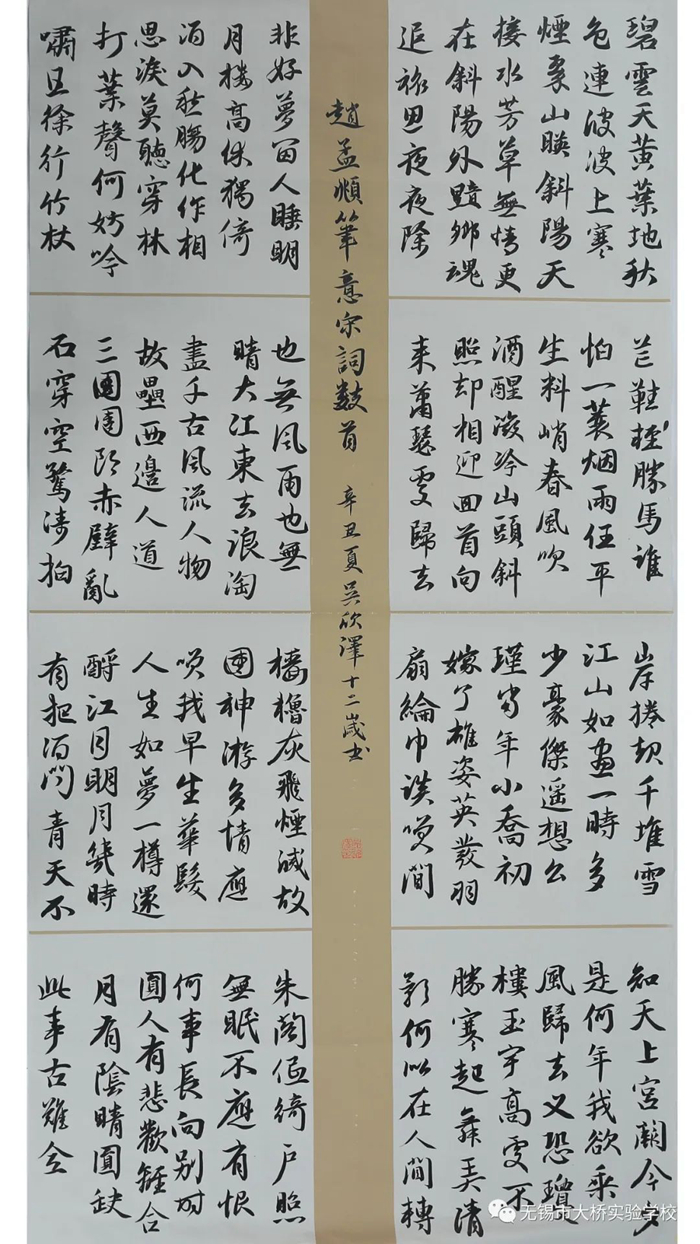 碧雲天黃葉地秋
色連波波上寒
煙翠山暎斜陽天
接水芳草無情更
在斜陽外黯鄉魂
追旅思夜夜除
非好夢留人睡明
月樓高休獨倚
酒入愁腸化作相
思淚莫聽穿林
打葉聲何妨吟
嘯且徐行竹杖
芒鞋輕勝馬誰
怕一蓑烟雨任平
生料峭春風吹
酒醒微冷山頭斜
照却相迎回首向
来蕭瑟處歸去
也無風雨也無
晴大江東去浪淘
盡千古風流人物
故壘西邊人道
三國周郎赤壁亂
石穿空驚濤拍
岸捲起千堆雪
江山如畫一時多
少豪傑遥想公
瑾當年小喬初
嫁了雄姿英發羽
扇綸巾談笑間
檣櫓灰飛煙滅故
國神游多情應
笑我早生華髮
人生如夢一樽還
酹江月明月幾時
有把酒問青天不
知天上宮闕今夕
是何年我欲乘
風歸去又恐瓊
樓玉宇高處不
勝寒起舞弄清
影何似在人間轉
朱閣低綺戶照
無眠不應有恨
何事長向別時
圓人有悲歡離合
月有陰晴圓缺
此事古難全
趙孟頫筆意宋詞數首 辛丑夏吳欣澤十二歲书
无锡市大桥实验学校